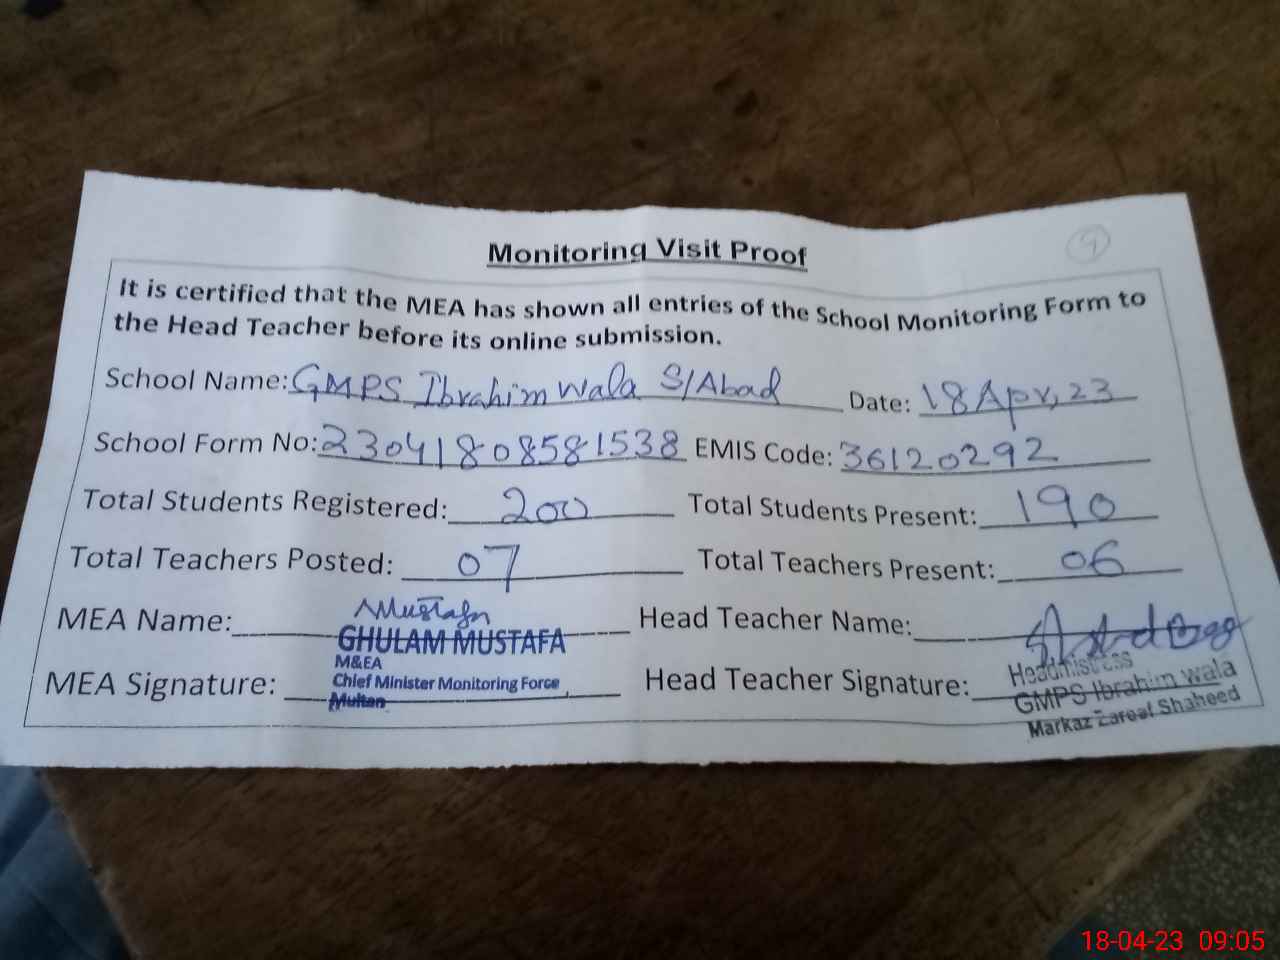 9
Monitoring Visit Proof
It is certified that the MEA has shown all entries of the School Monitoring Form to
the Head Teacher before its online submission.
School Name: GMPS Ibrahim Wala S/Abad Date: 18 Apr, 23
School Form No: 23041808581538 EMIS Code: 36120292
Total Students Registered: 200 Total Students Present: 190
Total Teachers Posted: 07 Total Teachers Present: 06
MEA Name: Mustafa Head Teacher Name:
GHULAM MUSTAFA
M&EA
Chief Minister Monitoring Force
Multan
MEA Signature: Head Teacher Signature:
Headmistress
GMPS Ibrahim wala
Markaz Zareef Shaheed
18-04-23 09:05